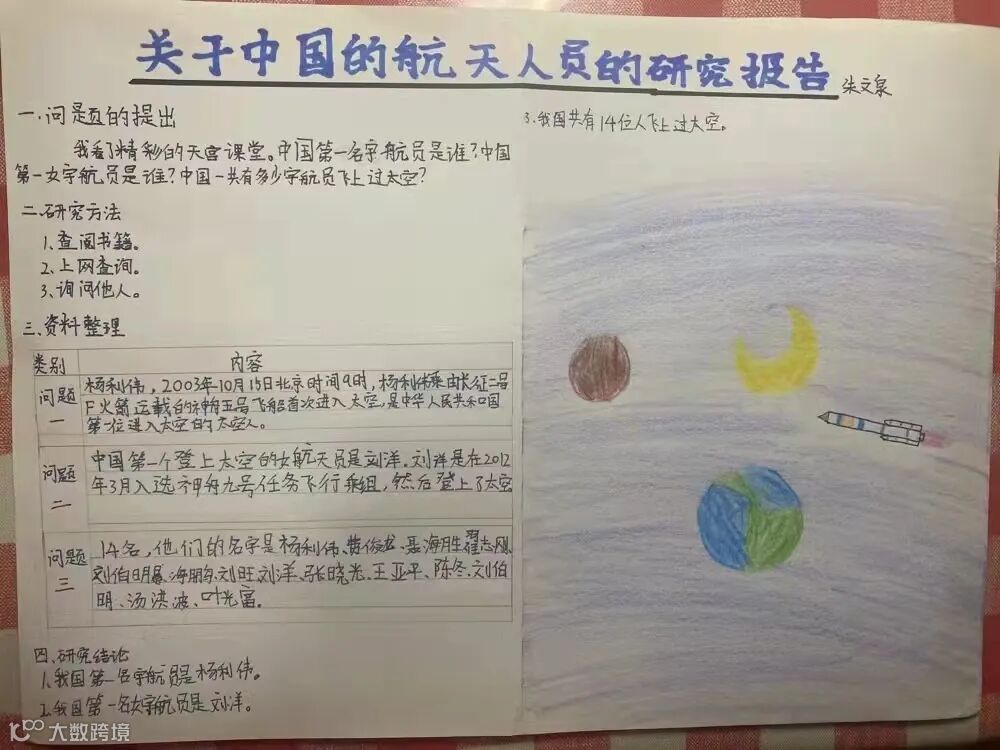 关于中国的航天人员的研究报告
张文泉
一.问题的提出
我看了精彩的天宫课堂。中国第一名宇航员是谁?中国
第一女宇航员是谁?中国一共有多少宇航员飞上过太空?
二.研究方法
1、查阅书籍。
2、上网查询。
3、询问他人。
三、资料整理
类别 内容
问题一 杨利伟,2003年10月15日北京时间9时,杨利伟乘由长征二号
F火箭运载的神舟五号飞船首次进入太空,是中华人民共和国
第一位进入太空的太空人。
问题二 中国第一个登上太空的女航天员是刘洋.刘洋是在2012
年3月入选神舟九号任务飞行乘组,然后登上了太空
问题三 14名,他们的名字是杨利伟、费俊龙、聂海胜、翟志刚、
刘伯明、景海鹏、刘旺、刘洋、张晓光、王亚平、陈冬、刘伯
明、汤洪波、叶光富.
四、研究结论
1.我国第一名宇航员是杨利伟。
2.我国第一名女宇航员是刘洋。
3.我国共有14位人飞上过太空。
大数跨境